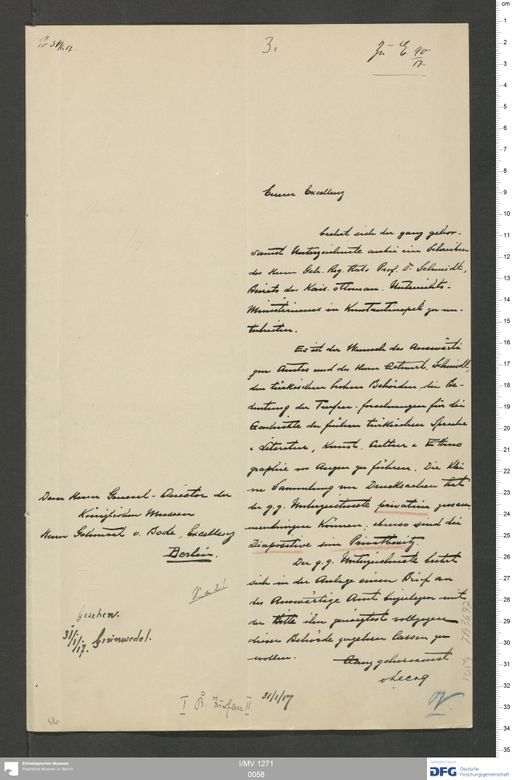 3.
Zu E 90/17.
Eurer Excellenz
beehrt sich der ganz gehor-
samst Unterzeichnete anbei ein Schreiben
des Herrn Geh. Reg. Rats Prof. D. Schmidt,
Beirats des Kais. ottoman. Unterrichts-
Ministeriums in Konstantinopel zu un-
terbreiten.
Es ist der Wunsch des Auswärti-
gen Amtes und des Herrn Geheimrt. Schmidt,
den türkischen hohen Behörden die Be-
deutung der Turfan-forschungen für die
Geschichte der frühen türkischen Sprache
u Literatur, Kunst, Cultur u Ethno
graphie vor Augen zu führen. Die klei
ne Sammlung von Drucksachen hat
der g. g. Unterzeichnete privatim zusam
menbringen können; ebenso sind die
Diapositive sein Privatbesitz.
Der g. g. Unterzeichnete beehrt
sich in der Anlage einen Brief an
das Auswärtige Amt beizulegen mit
der Bitte ihn geneigtest vollzogen
dieser Behörde zugehen lassen zu
wollen.
Ganz gehorsamst
v Lecoq
31/1/17
Dem Herrn General-Director der
Königlichen Museen
Herrn Geheimrat v. Bode, Excellenz
Berlin.
Gesehen.
31/1/17. Grünwedel.
I B. Turfan II
I/MV 1271
0058
Ethnologisches Museum
Staatliche Museen zu Berlin
DFG Deutsche
Forschungsgemeinschaft